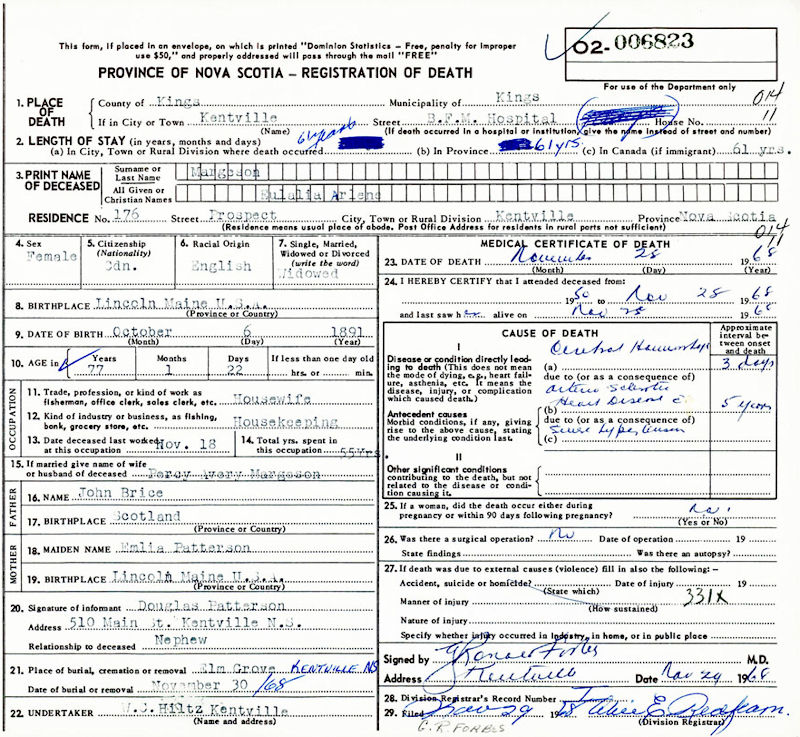 This form, if placed in an envelope, on which is printed "Dominion Statistics – Free, penalty for improper
use $50," and properly addressed will pass through the mail "FREE"
O2-006823
PROVINCE OF NOVA SCOTIA – REGISTRATION OF DEATH
For use of the Department only
014
1. PLACE OF DEATH { County of Kings Municipality of Kings
If in City or Town Kentville Street B.F.M. Hospital House No. 11
(Name) (If death occurred in a hospital or institution, give the name instead of street and number)
2. LENGTH OF STAY (in years, months and days)
(a) In City, Town or Rural Division where death occurred 61 years (b) In Province 61 yrs. (c) In Canada (if immigrant) 61 yrs.
3. PRINT NAME OF DECEASED { Surname or Last Name Margeson
All Given or Christian Names Eulalia Arlene
RESIDENCE No. 176 Street Prospect City, Town or Rural Division Kentville Province Nova Scotia
(Residence means usual place of abode. Post Office Address for residents in rural parts not sufficient)
011
4. Sex Female
5. Citizenship (Nationality) Cdn.
6. Racial Origin English
7. Single, Married, Widowed or Divorced (write the word) Widowed
8. BIRTHPLACE Lincoln Maine U.S.A.
(Province or Country)
9. DATE OF BIRTH October 6 1891
(Month) (Day) (Year)
10. AGE in Years 77 Months 1 Days 22 If less than one day old
hrs. or min.
OCCUPATION
11. Trade, profession, or kind of work as fisherman, office clerk, sales clerk, etc. Housewife
12. Kind of industry or business, as fishing, bank, grocery store, etc. Housekeeping
13. Date deceased last worked at this occupation Nov. 18
14. Total yrs. spent in this occupation 55Yrs.
15. If married give name of wife or husband of deceased Percy Avery Margeson
FATHER
16. NAME John Brice
17. BIRTHPLACE Scotland
(Province or Country)
MOTHER
18. MAIDEN NAME Emlia Patterson
19. BIRTHPLACE Lincoln Maine U.S.A.
(Province or Country)
20. Signature of informant Douglas Patterson
Address 510 Main St. Kentville N.S.
Relationship to deceased Nephew
21. Place of burial, cremation or removal Elm Grove KENTVILLE NS
Date of burial or removal November 30 /68
22. UNDERTAKER W.C. Hiltz Kentville
(Name and address)
MEDICAL CERTIFICATE OF DEATH
23. DATE OF DEATH November 28 1968
(Month) (Day) (Year)
24. I HEREBY CERTIFY that I attended deceased from:
1950 to Nov 28 1968
and last saw her alive on Nov 28 1968
CAUSE OF DEATH
Approximate interval between onset and death
I
Disease or condition directly leading to death (This does not mean the mode of dying, e.g., heart failure, asthenia, etc. It means the disease, injury, or complication which caused death.)
Cerebral Hemorrhage
(a) 3 days
due to (or as a consequence of)
Arterio Sclerotic
Heart Disease c̄
(b) 5 years
Antecedent causes
Morbid conditions, if any, giving rise to the above cause, stating the underlying condition last.
due to (or as a consequence of)
Severe Hypertension
(c)
II
Other significant conditions
contributing to the death, but not related to the disease or condition causing it.
25. If a woman, did the death occur either during pregnancy or within 90 days following pregnancy? No.
(Yes or No)
26. Was there a surgical operation? No Date of operation 19
State findings Was there an autopsy?
27. If death was due to external causes (violence) fill in also the following: –
Accident, suicide or homicide? Date of injury 19
(State which)
Manner of injury 331X
(How sustained)
Nature of injury
Specify whether injury occurred in Industry, in home, or in public place
Signed by G Ronald Forbes M.D.
Address Kentville Date Nov 29 1968
28. Division Registrar's Record Number
29. Filed 1968
(Division Registrar)
G.R. FORBES